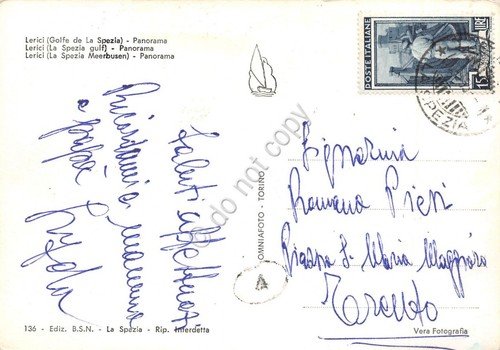 Lerici (Golfo de La Spezia) - Panorama
Lerici (La Spezia gulf) - Panorama
Lerici (La Spezia Meerbusen) - Panorama
POSTE ITALIANE
LIRE 15
SPEZIA
Saluti affettuosi
Ricordami a mamma
e papà
do not copy
OMNIAFOTO - TORINO
Signorina
Romana Pieri
Piazza S. Maria Maggiore
Trento
136 - Ediz. B.S.N. - La Spezia - Rip. Interdetta
Vera Fotografia